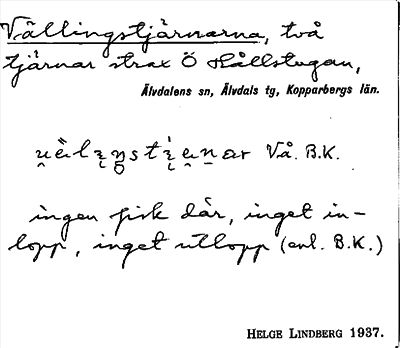 Vällingstjärnarna, två
tjärnar strax Ö Hållstugan,
Älvdalens sn, Älvdals tg, Kopparbergs län.
Vå. B.K.
ingen fisk där, inget in-
lopp, inget utlopp (enl. B.K.)
HELGE LINDBERG 1937.